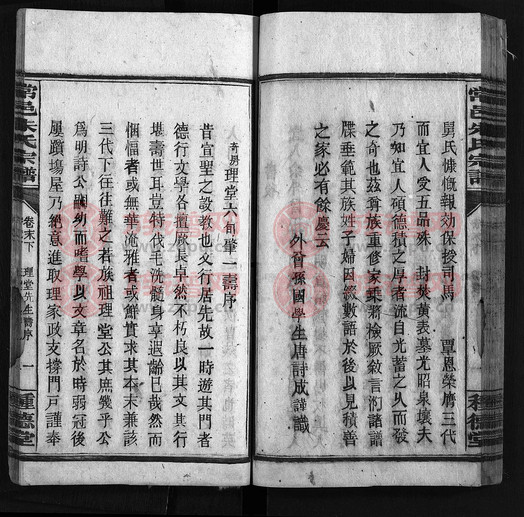 舅氏慷慨報効保授司馬 覃恩榮膺三代
而宜人受五品殊 封焚黄表墓光昭泉壤夫
乃知宜人碩德積之厚者流自光蓄之久而發
之奇也茲尊族重修家乘
牒垂範其族姓子婦因綴數語於後以見積善
之家必有餘慶云
外曾孫國學生唐討成謹識
理堂六旬肇一壽序
昔宣聖之設教也文行居先故一時遊其門者
德行文學各擅厥長卓然不朽良以其文其行
堪壽世耳豈特伐毛洗髓身享遐齡已哉然而
悃愊者或無華流雅者或鮮實求其本末兼該
三代下往往難之若族祖理堂公其庶幾乎公
爲明詩公嗣幼而嗜學以文章名於時弱冠後
屢躓塲屋乃絕意進取理家政支撐門戶謹奉
常邑朱氏宗譜
卷末下
理堂先生壽序
一
種德堂